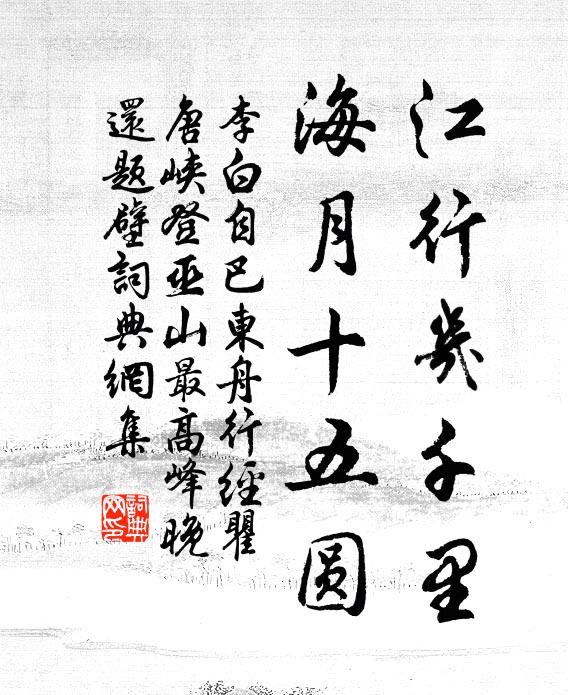 江行幾千里
海月十五圓
李白自巴東舟行經瞿
唐峽登巫山最高峰晚
還題壁詞典網集
詞典
网印